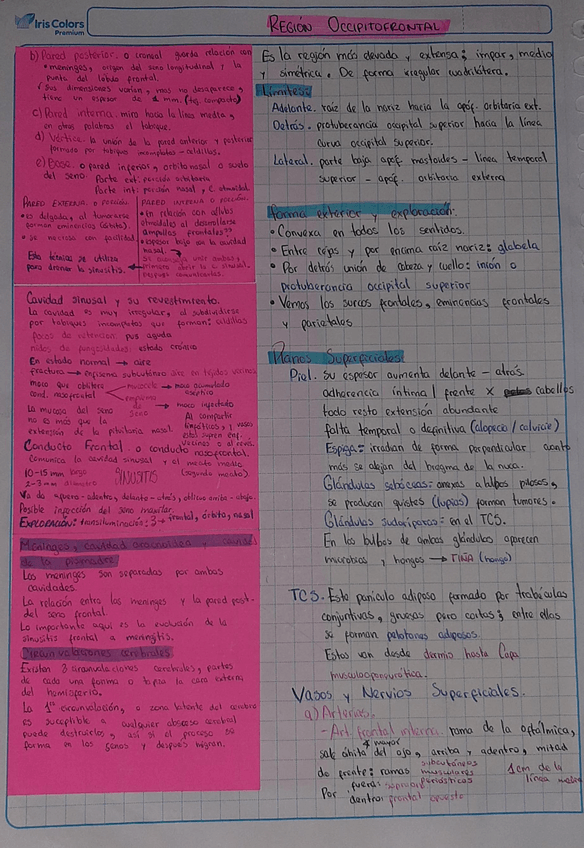 Iris Colors
Premium
REGIÓN OCCIPITOFRONTAL
b) Pared posterior o craneal guarda relación con
• meninges, origen del seno longitudinal y la
punta del lóbulo frontal.
Sus dimensiones varían, mas no desaparece y
tiene un espesor de 1 mm. (tej. compacto)
c) Pared interna. mira hacia la línea media,
en otras palabras el tabique.
d) Vértice. la unión de la pared anterior y posterior
formado por tabiques incompletos - celdillas.
e) Base. o pared inferior, orbitonasal o suelo
del seno. Parte ext: porción orbitaria
Parte int: porción nasal, c. etmoidal.
PARED EXTERNA. o porción.
• es delgada, al tumorarse
forman eminencias (órbita).
• se necrosa con facilidad.
Esta técnica se utiliza
para drenar la sinusitis.
PARED INTERNA O PORCIÓN.
• en relación con células
etmoidales al desarrollarse
ampollas frontales
• espesor bajo con la cavidad
nasal.
Cavidad sinusal y su revestimiento.
la cavidad es muy irregular, al subdividirse
por tabiques incompletos que forman: celdillas
focos de retención: pus aguda
nidos de fungosidades: estado crónico
En estado normal → aire
fractura → enfisema subcutáneo aire en tejidos vecinos
moco que obstruye
cond. nasofrontal
mucocele → moco acumulado
aséptico
empiema → moco infectado
seno
La mucosa del seno
no es más que la
extensión de la pituitaria nasal.
Al compartir
linfáticos y vasos
estos sufren enf.
vecinas o al revés.
Conducto Frontal. o conducto nasofrontal.
Comunica la cavidad sinusal y el meato medio
(segundo meato).
10-15 mm largo
2-3 mm diámetro
SINUSITIS
Va de afuera - adentro, delante - atrás, oblicuo arriba - abajo.
Posible infección del seno maxilar.
EXPLORACIÓN: transiluminación: 3 → frontal, órbita, nasal
Meninges, cavidad aracnoidea y
de la piamadre
Las meninges son separadas por ambas
cavidades.
La relación entre las meninges y la pared post.
del seno frontal.
Lo importante aquí es la evolución de la
sinusitis frontal a meningitis.
Circunvoluciones cerebrales
Existen 3 circunvoluciones cerebrales, partes
de cada una forma o tapiza la cara externa
del hemisferio.
La 1° circunvolución, o zona latente del cerebro
es suceptible a cualquier absceso cerebral
puede destruirlos, así si el proceso se
forma en los senos y después migran.
Es la región más elevada y extensa; impar, media
y simétrica. De forma irregular cuadrilátera.
Límites:
Adelante. raíz de la nariz hacia la apóf. orbitaria ext.
Detrás. protuberancia occipital superior hacia la línea
curva occipital superior.
Lateral. parte baja apóf. mastoides - línea temporal
superior - apóf. orbitaria externa
forma exterior y exploración:
• Convexa en todos los sentidos.
• Entre cejas y por encima raíz nariz: glabela
• Por detrás unión de cabeza y cuello: inión o
protuberancia occipital superior
• Vemos los surcos frontales, eminencias frontales
y parietales
Planos Superficiales
Piel. su espesor aumenta delante - atrás.
adherencia íntima / frente X cabellos
todo resto extensión abundante
falta temporal o definitiva (alopecia / calvicie)
Espiga: irradian de forma perpendicular cuanto
más se alejan del bregma de la nuca.
Glándulas sebáceas: anexas a bulbos pilosos,
se producen quistes (lupias) forman tumores.
Glándulas sudoríparas: en el TCS.
En los bulbos de ambas glándulas aparecen
microbios y hongos → TIÑA (hongo)
TCS. Este panículo adiposo formado por trabéculas
conjuntivas, gruesas pero cortas; entre ellas
se forman pelotones adiposos.
Estos van desde dermis hasta Capa
musculoaponeurótica.
Vasos y Nervios Superficiales.
a) Arterias.
- Art. frontal interna. rama de la oftálmica,
mayor
sale órbita del ojo, arriba y adentro, mitad
de frente: ramas subcutáneos
musculares
periósticos
1cm de la
línea media
Por fuera:
dentro: frontal opuesto